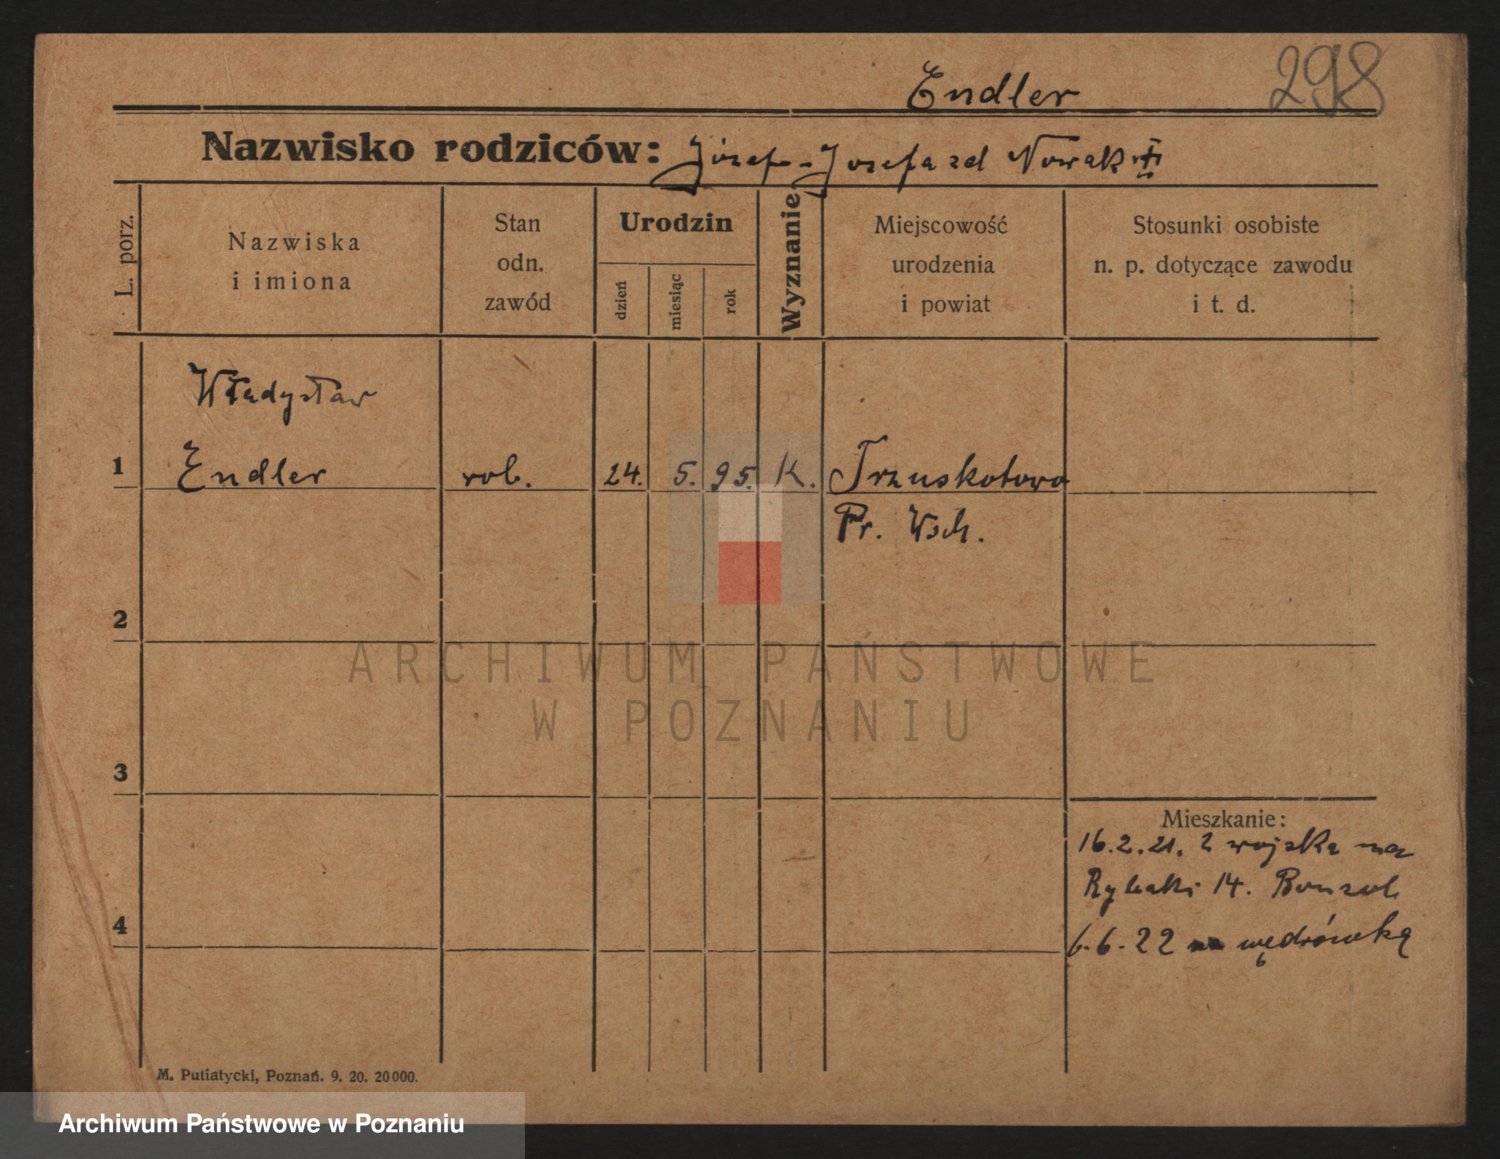 298
Endler
Nazwisko rodziców: Józef - Jozefa zd Nowak
L. porz.
Nazwiska
i imiona
Stan
odn.
zawód
Urodzin
dzień
miesiąc
rok
Wyznanie
Miejscowość
urodzenia
i powiat
Stosunki osobiste
n. p. dotyczące zawodu
i t. d.
Władysław
1 Endler rob. 24. 5. 95. K. Trzuskotowo
Pr. Wsch.
2
ARCHIWUM PAŃSTWOWE
W POZNANIU
3
Mieszkanie:
16.2.21. z wojska na
Rybaki 14.
4
6.6.22 na wędrówkę
M. Putiatycki, Poznań. 9. 20. 20000.
Archiwum Państwowe w Poznaniu